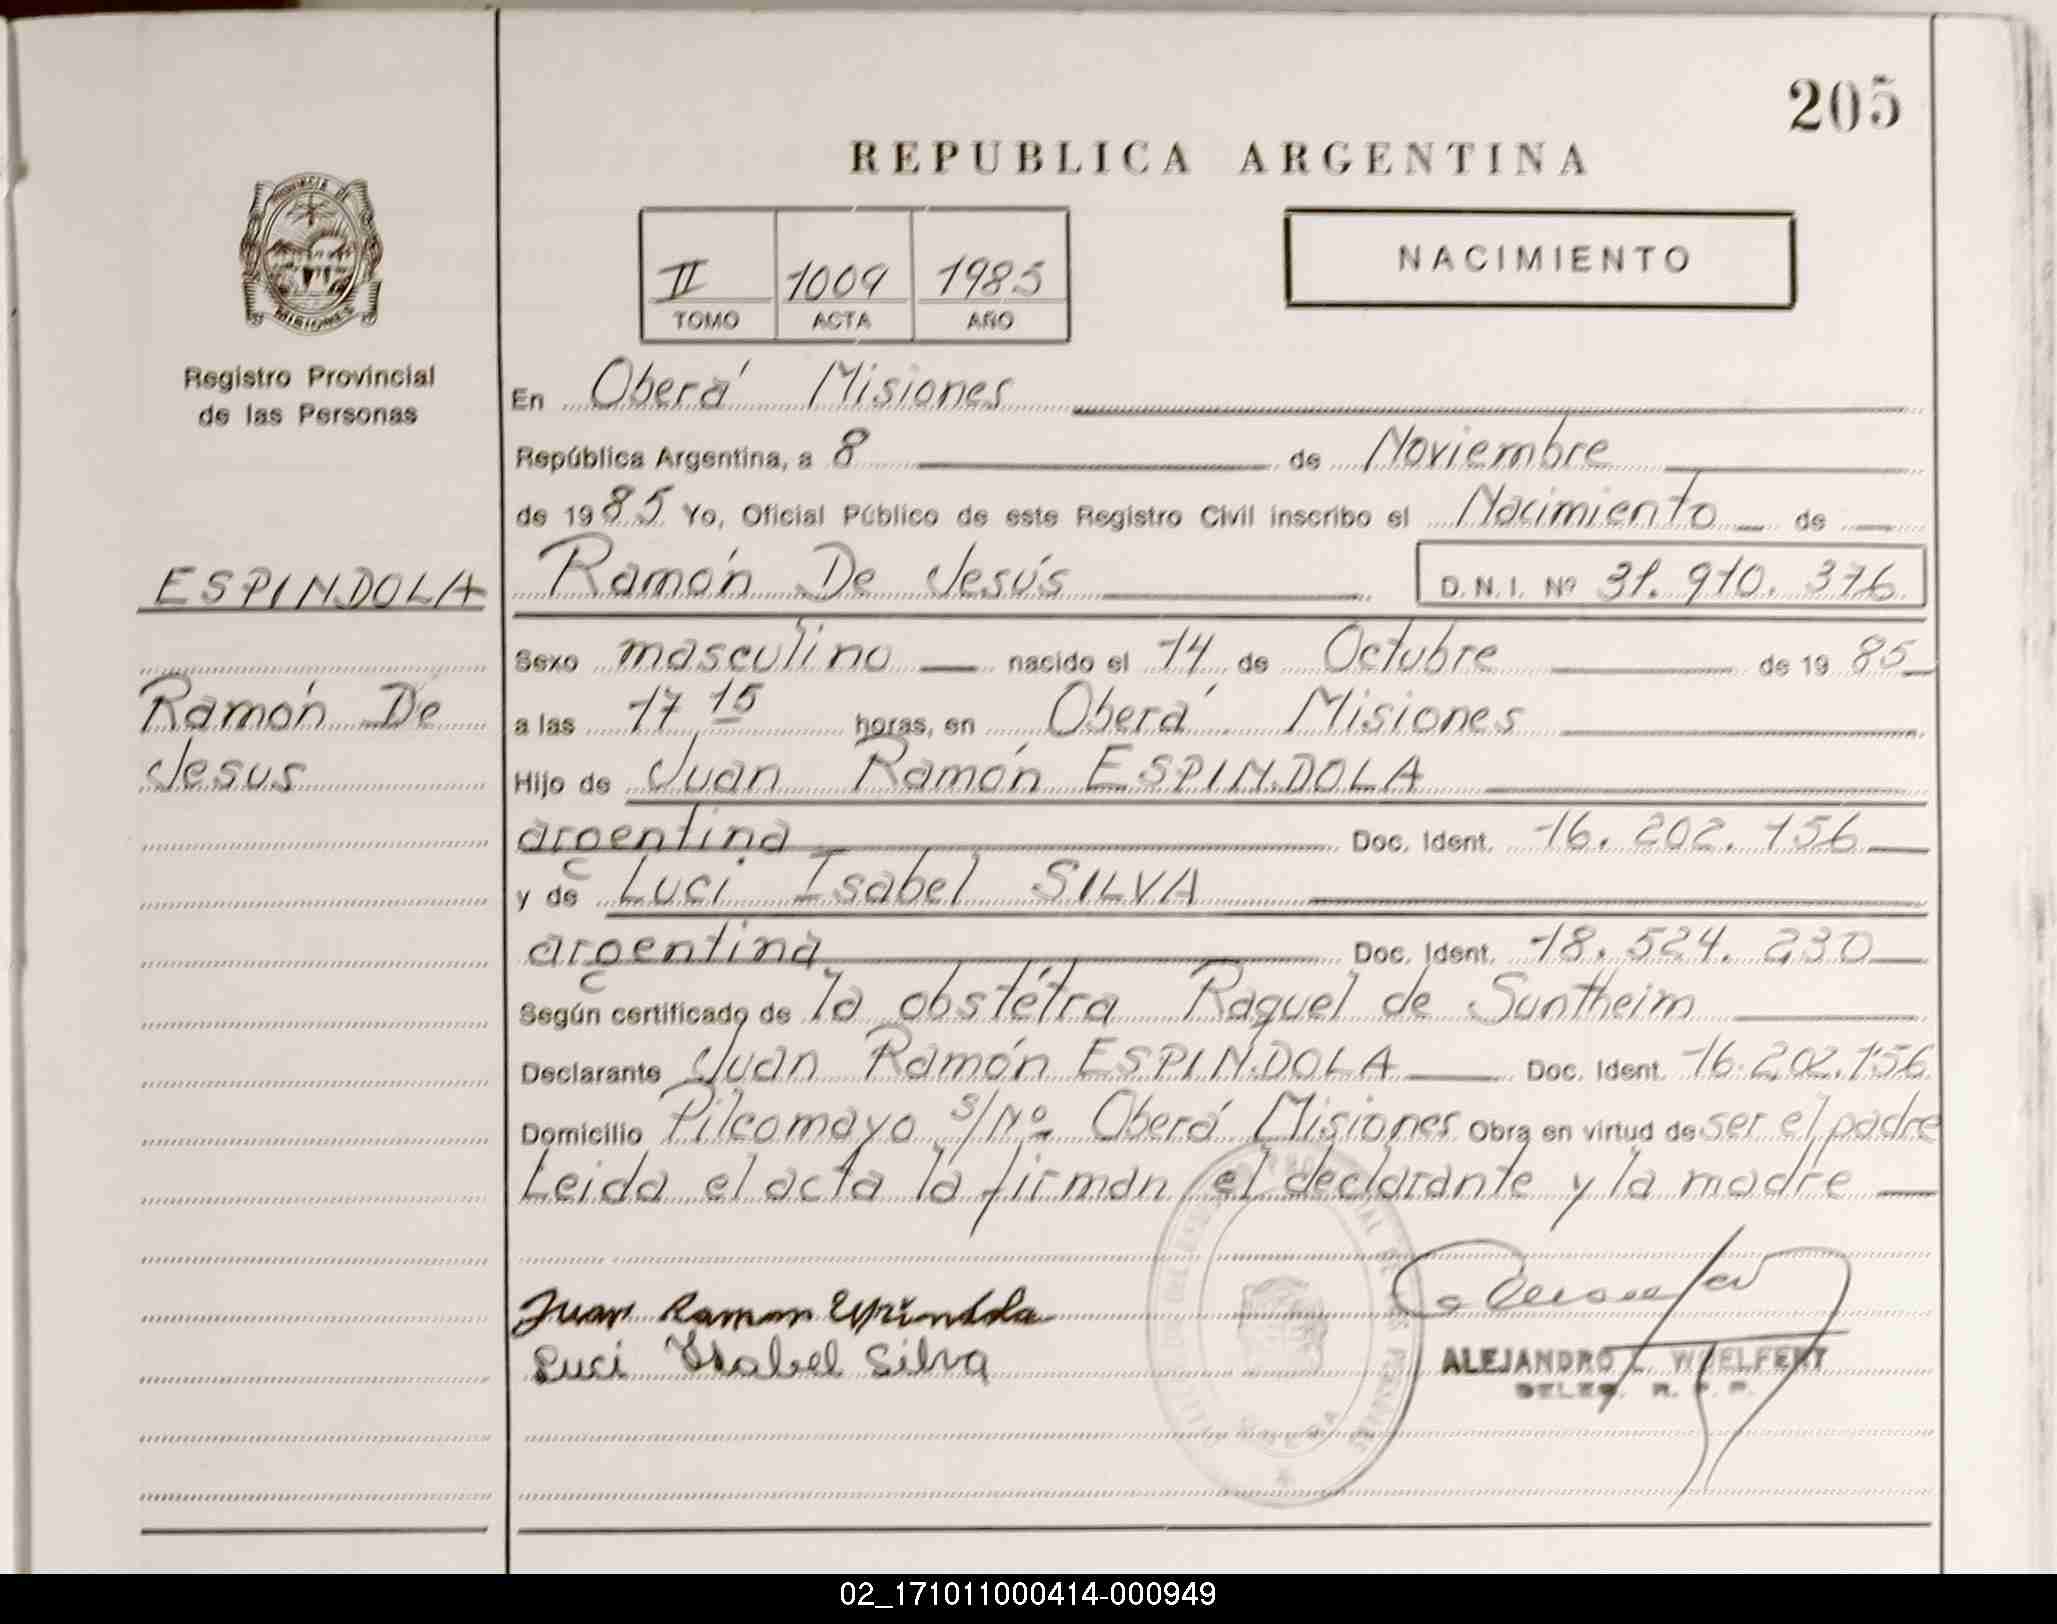 205
REPUBLICA ARGENTINA
PROVINCIA DE
MISIONES
Registro Provincial
de las Personas
NACIMIENTO
II 1009 1985
TOMO ACTA AÑO
En Oberá Misiones
República Argentina, a 8 de Noviembre
de 1985 Yo, Oficial Público de este Registro Civil inscribo el Nacimiento de
ESPINDOLA
Ramón De Jesus
Ramón De Jesús D.N.I. Nº 31.910.376
Sexo masculino nacido el 14 de Octubre de 1985
a las 17 15 horas, en Oberá Misiones
Hijo de Juan Ramón ESPINDOLA
argentina Doc. Ident. 16.202.156
y de Luci Isabel SILVA
argentina Doc. Ident. 18.524.230
Según certificado de la obstétra Raquel de Suntheim
Declarante Juan Ramón ESPINDOLA Doc. Ident. 16.202.156
Domicilio Pilcomayo s/Nº Oberá Misiones Obra en virtud de ser el padre
Leida el acta la firman el declarante y la madre
Juan Ramon Espindola
Luci Ysabel Silva
ALEJANDRO WOELFERT
DELEG. R. P. P.
02_171011000414-000949